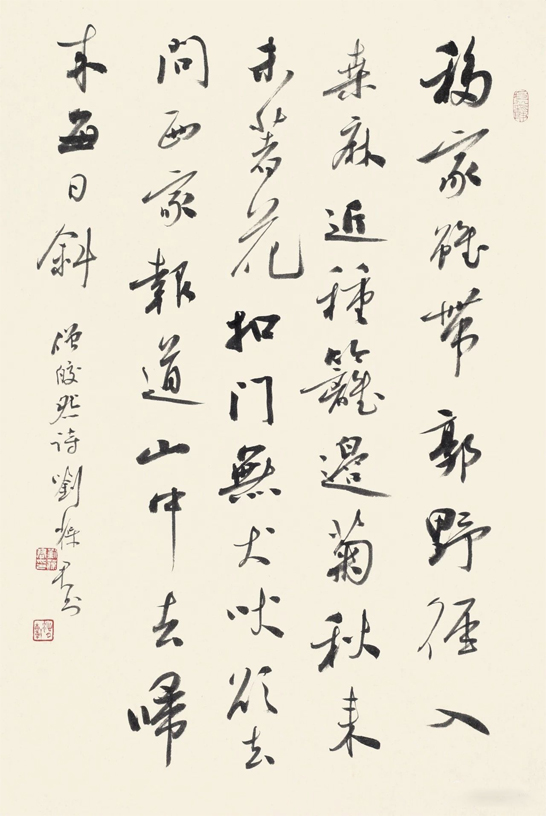 移家雖帶郭野徑入
桑麻近種籬邊菊秋来
未著花扣门無犬吠欲去
問西家報道山中去歸
来每日斜 僧皎然诗劉